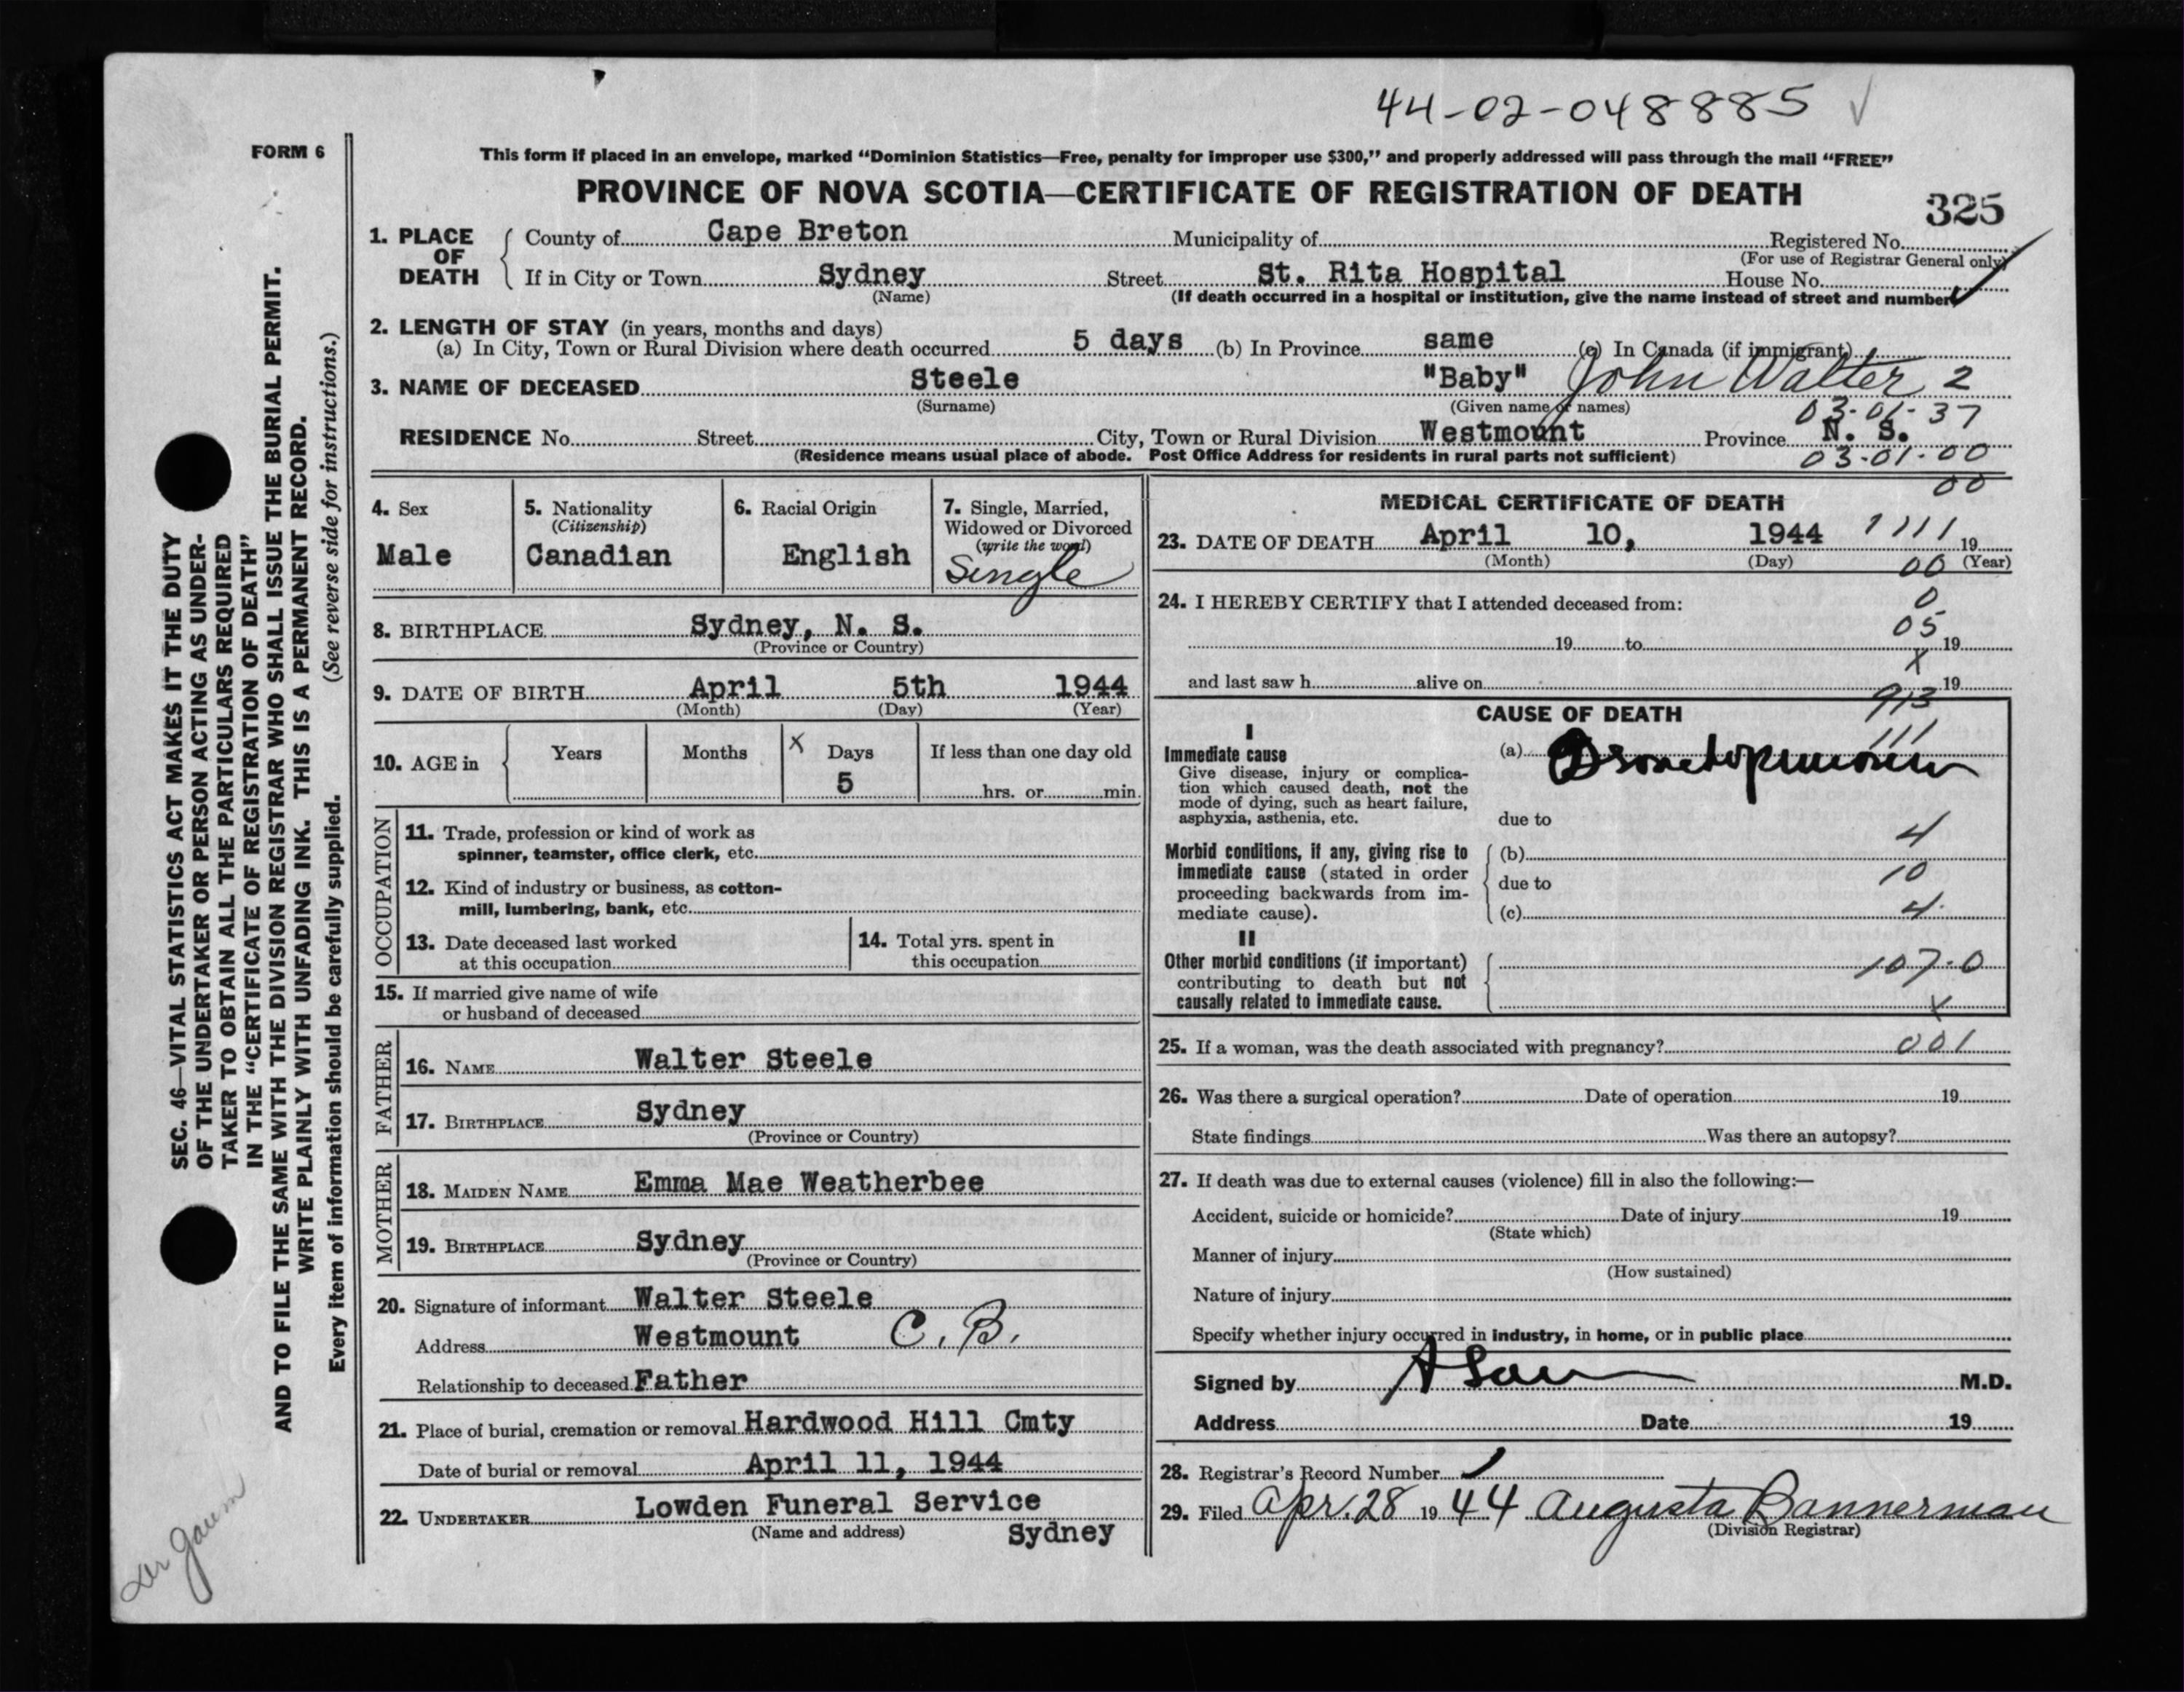 44-02-048885 ✓
FORM 6
This form if placed in an envelope, marked “Dominion Statistics—Free, penalty for improper use $300,” and properly addressed will pass through the mail “FREE”
PROVINCE OF NOVA SCOTIA—CERTIFICATE OF REGISTRATION OF DEATH
325
1. PLACE OF DEATH
County of Cape Breton Municipality of Registered No.
(For use of Registrar General only)
If in City or Town Sydney Street St. Rita Hospital House No.
(Name) (If death occurred in a hospital or institution, give the name instead of street and number)
2. LENGTH OF STAY (in years, months and days)
(a) In City, Town or Rural Division where death occurred 5 days (b) In Province same (c) In Canada (if immigrant)
3. NAME OF DECEASED Steele "Baby" John Walter 2
(Surname) (Given name or names) 03-01-37
RESIDENCE No. Street City, Town or Rural Division Westmount Province N. S.
(Residence means usual place of abode. Post Office Address for residents in rural parts not sufficient) 03-01-00
00
4. Sex
Male
5. Nationality
(Citizenship)
Canadian
6. Racial Origin
English
7. Single, Married,
Widowed or Divorced
(write the word)
Single
8. BIRTHPLACE Sydney, N. S.
(Province or Country)
9. DATE OF BIRTH April 5th 1944
(Month) (Day) (Year)
10. AGE in Years Months X Days If less than one day old
5 hrs. or min.
OCCUPATION
11. Trade, profession or kind of work as
spinner, teamster, office clerk, etc.
12. Kind of industry or business, as cotton-
mill, lumbering, bank, etc.
13. Date deceased last worked
at this occupation
14. Total yrs. spent in
this occupation
15. If married give name of wife
or husband of deceased
FATHER
16. NAME Walter Steele
17. BIRTHPLACE Sydney
(Province or Country)
MOTHER
18. MAIDEN NAME Emma Mae Weatherbee
19. BIRTHPLACE Sydney
(Province or Country)
20. Signature of informant Walter Steele
Address Westmount C. B.
Relationship to deceased Father
21. Place of burial, cremation or removal Hardwood Hill Cmty
Date of burial or removal April 11, 1944
22. UNDERTAKER Lowden Funeral Service
(Name and address) Sydney
MEDICAL CERTIFICATE OF DEATH
23. DATE OF DEATH April 10, 1944 1111 19
(Month) (Day) 00 (Year)
24. I HEREBY CERTIFY that I attended deceased from: 0
05
19 to 19
X
and last saw h alive on 19
913
CAUSE OF DEATH
111
I
Immediate cause
Give disease, injury or complica-
tion which caused death, not the
mode of dying, such as heart failure,
asphyxia, asthenia, etc.
(a) Bronchopneumonia
due to
4
Morbid conditions, if any, giving rise to
immediate cause (stated in order
proceeding backwards from im-
mediate cause).
(b)
due to 10
(c) 4
II
Other morbid conditions (if important)
contributing to death but not
causally related to immediate cause.
107.0
X
25. If a woman, was the death associated with pregnancy? 001
26. Was there a surgical operation? Date of operation 19
State findings Was there an autopsy?
27. If death was due to external causes (violence) fill in also the following:—
Accident, suicide or homicide? Date of injury 19
(State which)
Manner of injury
(How sustained)
Nature of injury
Specify whether injury occurred in industry, in home, or in public place
Signed by M.D.
Address Date 19
28. Registrar's Record Number 1
29. Filed Apr. 28 19 44 Augusta Bannerman
(Division Registrar)
SEC. 46—VITAL STATISTICS ACT MAKES IT THE DUTY
OF THE UNDERTAKER OR PERSON ACTING AS UNDER-
TAKER TO OBTAIN ALL THE PARTICULARS REQUIRED
IN THE “CERTIFICATE OF REGISTRATION OF DEATH”
AND TO FILE THE SAME WITH THE DIVISION REGISTRAR WHO SHALL ISSUE THE BURIAL PERMIT.
WRITE PLAINLY WITH UNFADING INK. THIS IS A PERMANENT RECORD.
Every item of information should be carefully supplied. (See reverse side for instructions.)